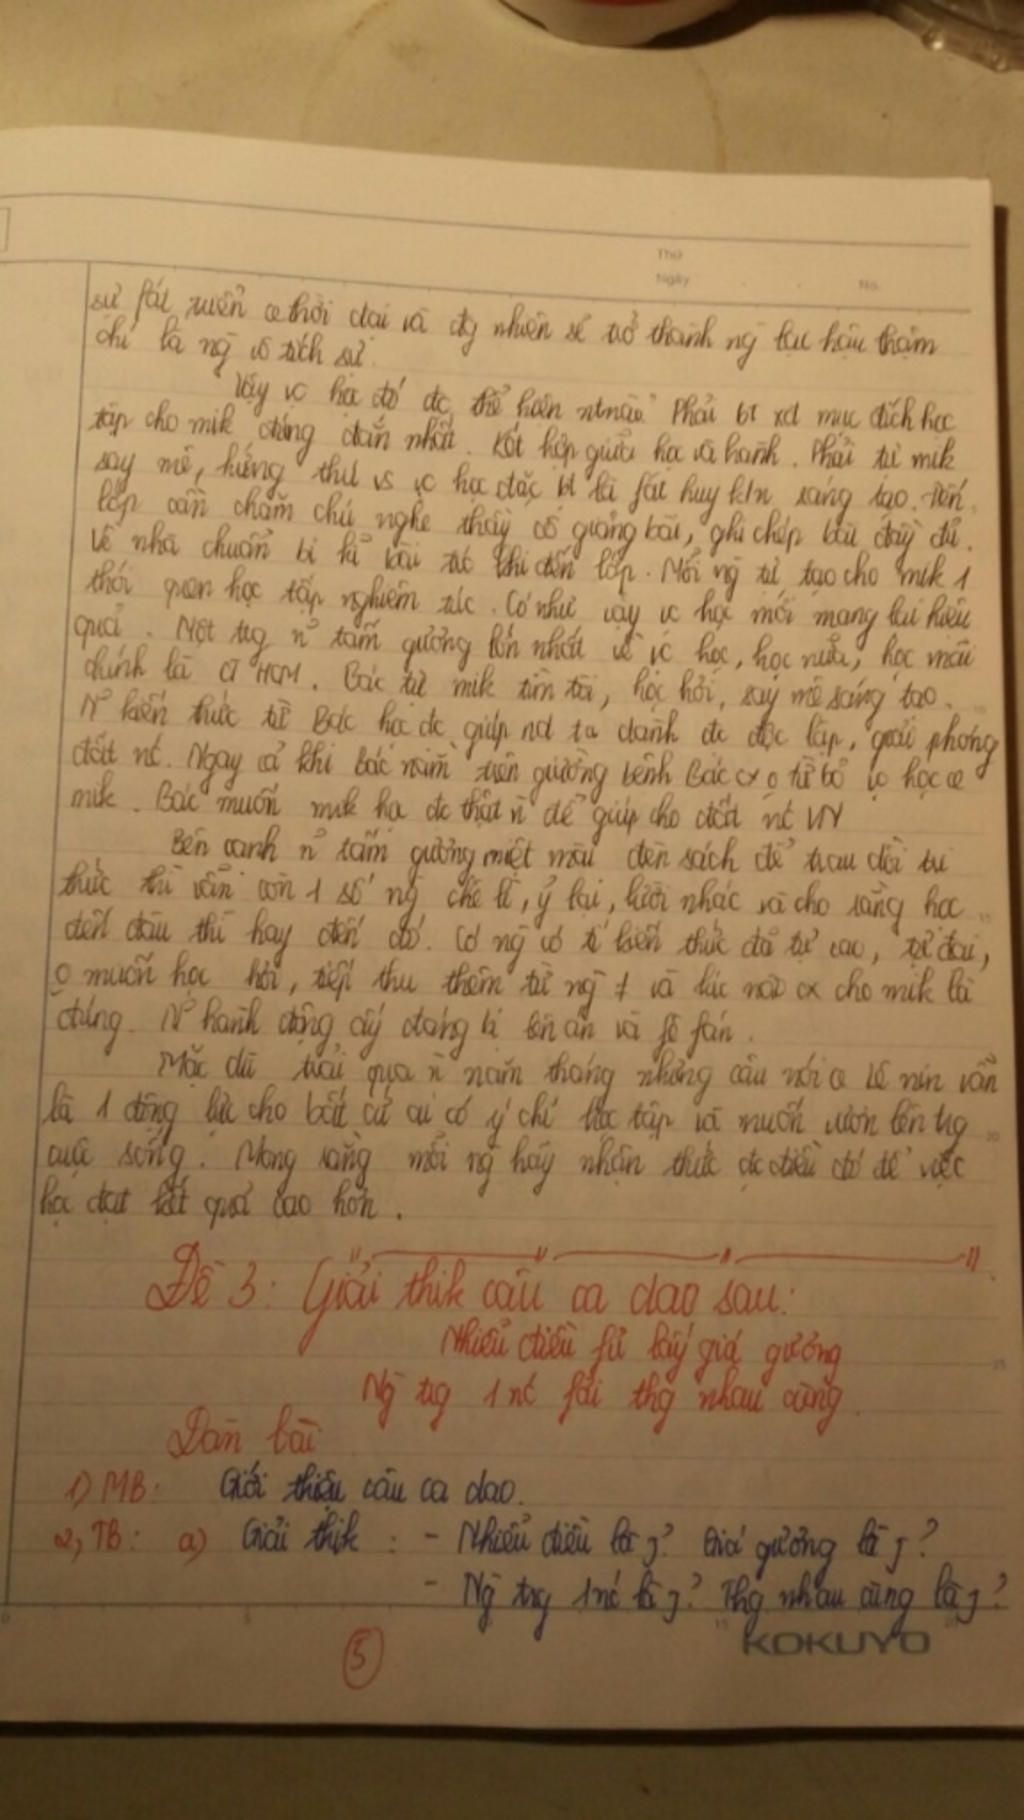 Thứ
Ngày No.
sự fát triển @ thời đại và đg nhiên sẽ trở thành ng lạc hậu thậm
chí là ng vô tích sự.
Vậy vc học đó đc thể hiện ntnào? Phải bt xđ mục đích học
tập cho mik đúng đắn nhất. Kết hợp giữa học và hành. Phải tự mik
say mê, hứng thú vs vc học đặc bt là fát huy k/n sáng tạo. Đến
lớp cần chăm chú nghe thầy cô giảng bài, ghi chép bài đầy đủ.
Về nhà chuẩn bị kĩ bài trc khi đến lớp. Mỗi ng tự tạo cho mik 1
thời gian học tập nghiêm túc. Có như vậy vc học mới mang lại hiệu
quả. Một tng n~ tấm gương lớn nhất về vc học, học nữa, học mãi
chính là CT HCM. Bác tự mik tìm tòi, học hỏi, say mê sáng tạo.
N~ kiến thức từ Bác học đc giúp nd ta dành đc độc lập, giải phóng
đất nc. Ngay cả khi Bác nằm trên giường bệnh Bác cx o từ bỏ vc học @
mik. Bác muốn mik học đc thật n` để giúp cho đất nc VN
Bên cạnh n~ tấm gương miệt mài đèn sách để trau dồi tri
thức thì vẫn còn 1 số ng chê lì, ỷ lại, lười nhác và cho rằng học
đến đâu thì hay đến đó. Có ng có tí kiến thức đã tự cao, tự đại,
o muốn học hỏi, tiếp thu thêm từ ng ≠ và lúc nào cx cho mik là
đúng. N~ hành động ấy đáng bị lên án và fê fán.
Mặc dù trải qua n` năm tháng nhưng câu nói @ Lê nin vẫn
là 1 động lực cho bất cứ ai có ý chí học tập và muốn vươn lên tng
cuộc sống. Mong rằng mỗi ng hãy nhận thức đc điều đó để việc
học đạt kết quả cao hơn.
Đề 3: Giải thik câu ca dao sau:
Nhiễu điều fủ lấy giá gương
Ng tng 1 nc fải thg nhau cùng
Dàn bài
1) MB: Giới thiệu câu ca dao.
2, TB: a) Giải thik: - Nhiễu điều là j? Giá gương là j?
- Ng tng 1 nc là j? Thg nhau cùng là j?
5
KOKUYO